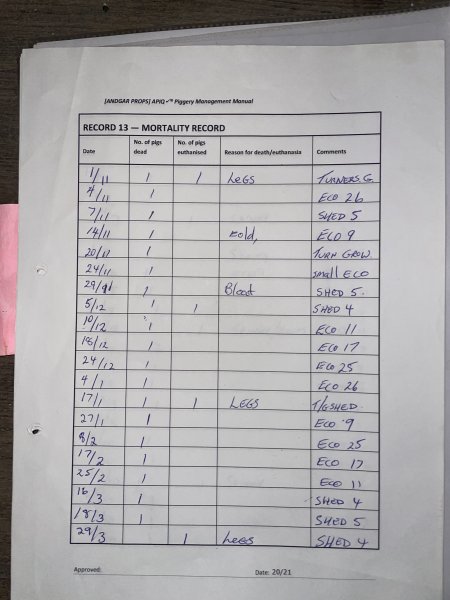 [ANDGAR PROPS] APIQ✓™ Piggery Management Manual
RECORD 13 — MORTALITY RECORD
Date No. of pigs dead No. of pigs euthanised Reason for death/euthanasia Comments
1/11 1 1 LEGS TURNERS.G.
4/11 1 ECO 26
7/11 1 SHED 5
14/11 1 Cold, ECO 9
20/11 1 TURN GROW.
24/11 1 small ECO
29/11 1 Bloat SHED 5.
5/12 1 1 SHED 4
10/12 1 ECO 11
18/12 1 ECO 17
24/12 1 ECO 25
4/1 1 ECO 26
17/1 1 1 LEGS T/GSHED
27/1 1 ECO 9
8/2 1 ECO 25
17/2 1 ECO 17
25/2 1 ECO 11
16/3 1 SHED 4
18/3 1 SHED 5
29/3 1 Legs SHED 4
Approved: Date: 20/21